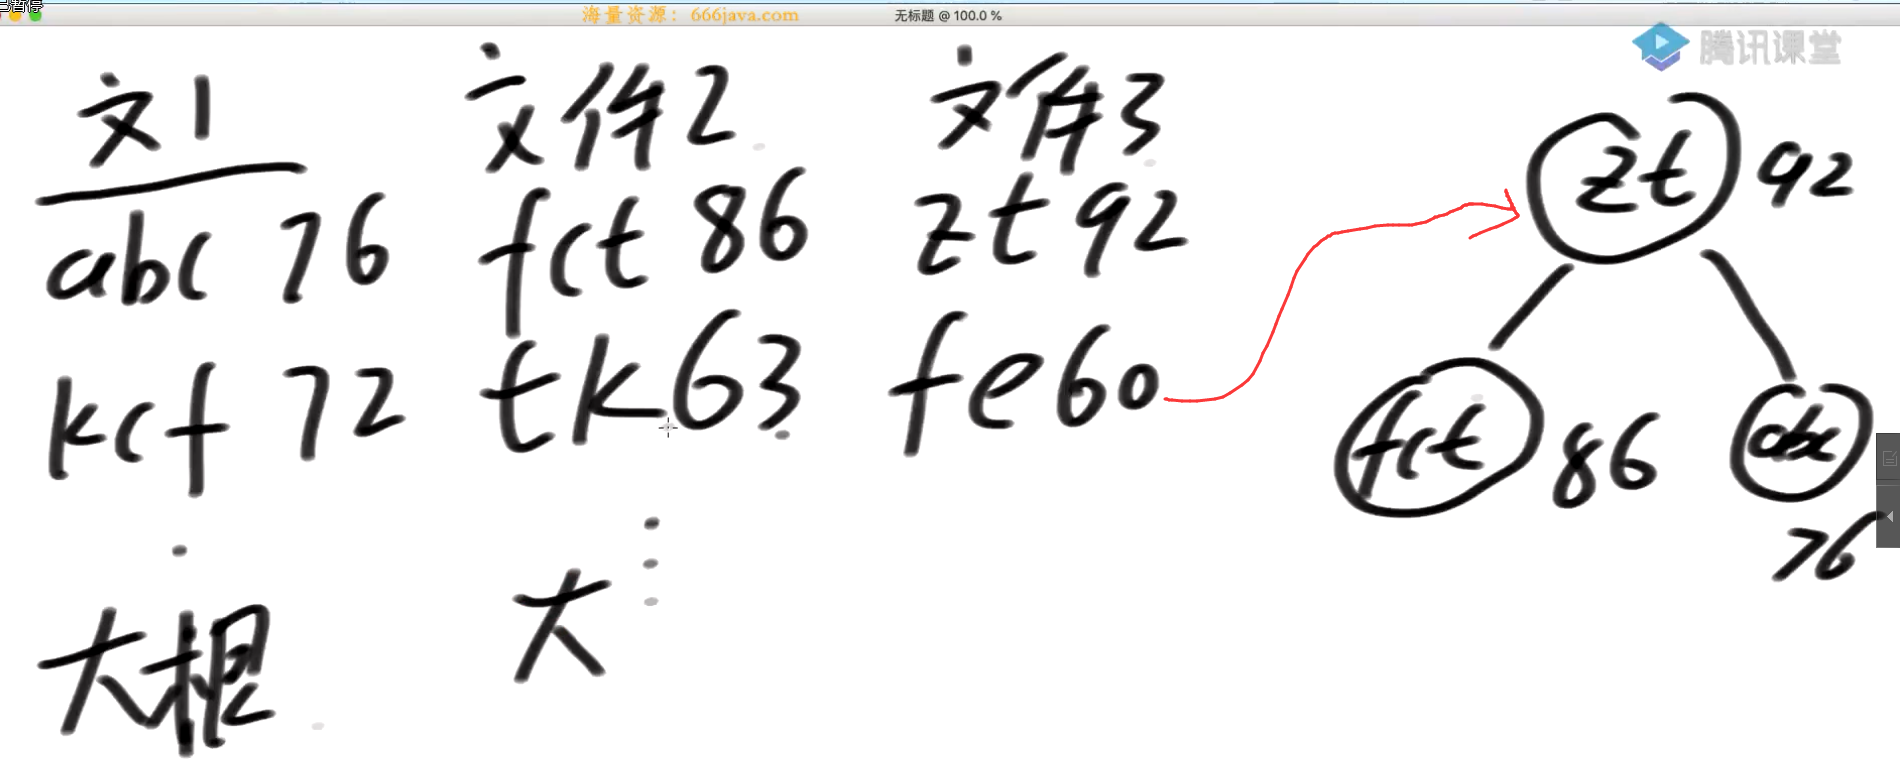 已暂停
海量资源：666java.com
无标题 @ 100.0 %
腾讯课堂
文1
abc 76
kcf 72
大根
文件2
fct 86
tk 63
大
文件3
zt 92
fe 60
zt 92
fct 86
abc
76